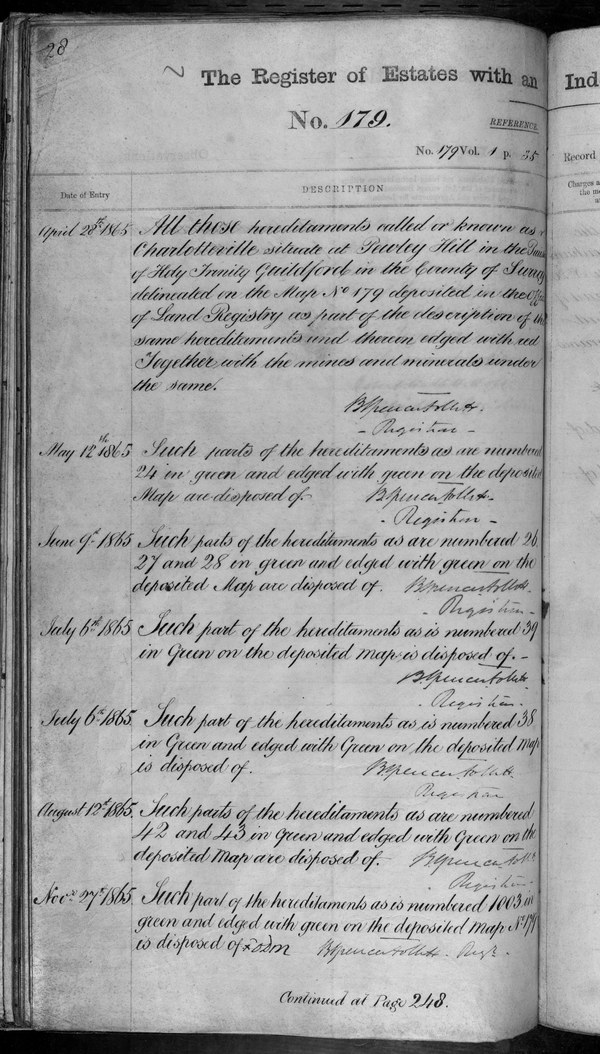 28
The Register of Estates with an
No. 179.
REFERENCE.
No. 179 Vol. 1 p. 35
Date of Entry
DESCRIPTION
April 28th 1865 All those hereditaments called or known as
Charlotteville situate at Pewley Hill in the Parish
of Holy Trinity Guildford in the County of Surrey
delineated on the Map No 179 deposited in the Office
of Land Registry as part of the description of the
same hereditaments and thereon edged with red
Together with the mines and minerals under
the same.
B Spencer Follett.
- Registrar -
May 12th 1865 Such parts of the hereditaments as are numbered
24 in green and edged with green on the deposited
Map are disposed of. B Spencer Follett -
- Registrar -
June 9th 1865 Such parts of the hereditaments as are numbered 26,
27 and 28 in green and edged with green on the
deposited Map are disposed of. B Spencer Follett -
- Registrar -
July 6th 1865 Such part of the hereditaments as is numbered 39
in Green on the deposited Map is disposed of. -
B Spencer Follett
- Registrar.
July 6th 1865. Such part of the hereditaments as is numbered 38
in Green and edged with Green on the deposited Map
is disposed of. B Spencer Follett.
Registrar
August 12th 1865. Such parts of the hereditaments as are numbered
42 and 43 in Green and edged with Green on the
deposited Map are disposed of. B Spencer Follett
Registrar.
Novr 27th 1865. Such part of the hereditaments as is numbered 1003 in
green and edged with green on the deposited Map No 179
is disposed of B Spencer Follett. Regr.
Continued at Page 248.
Ind
Record
Charges a
the m